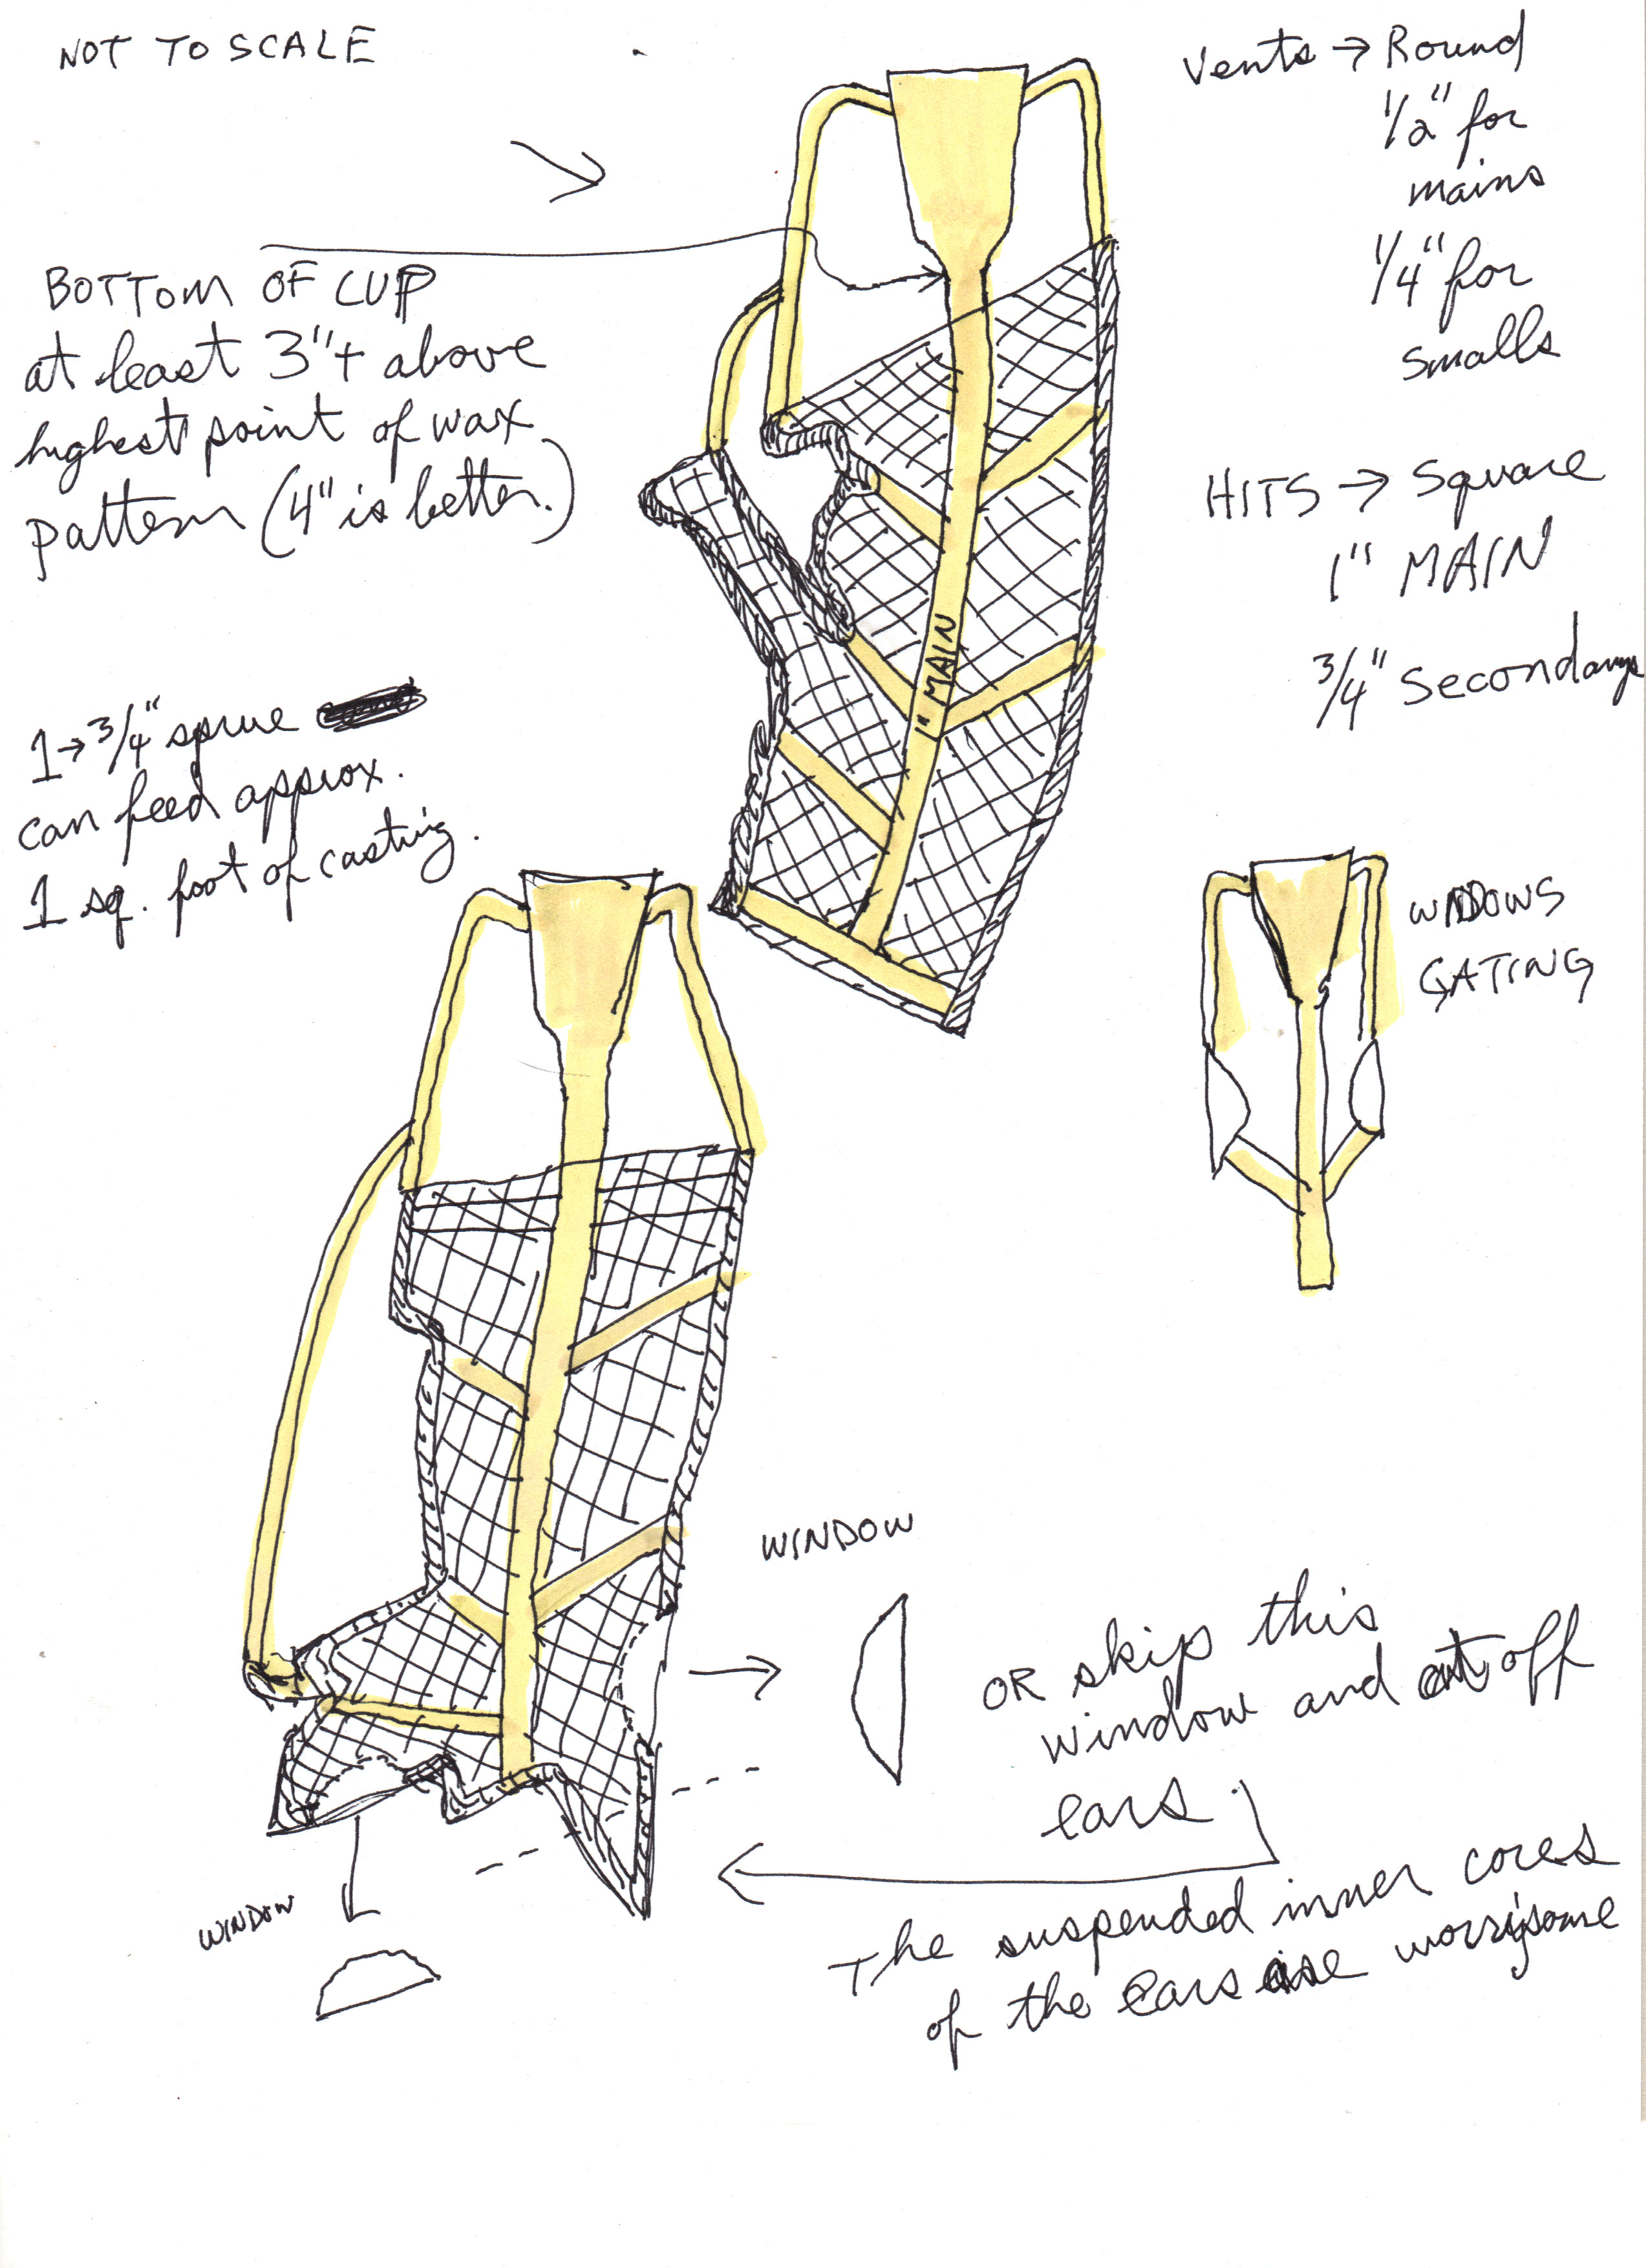 NOT TO SCALE
Vents → Round
1/2" for
mains
1/4" for
smalls
BOTTOM OF CUP
at least 3"+ above
highest point of wax
pattern (4" is better.)
HITS → Square
1" MAIN
3/4" Secondarys
1" MAIN
1→3/4" sprue
can feed approx.
1 sq. foot of casting.
WINDOWS
GATING
WINDOW
OR skip this
window and cut off
ears.
WINDOW
The suspended inner cores
of the ears are worrysome